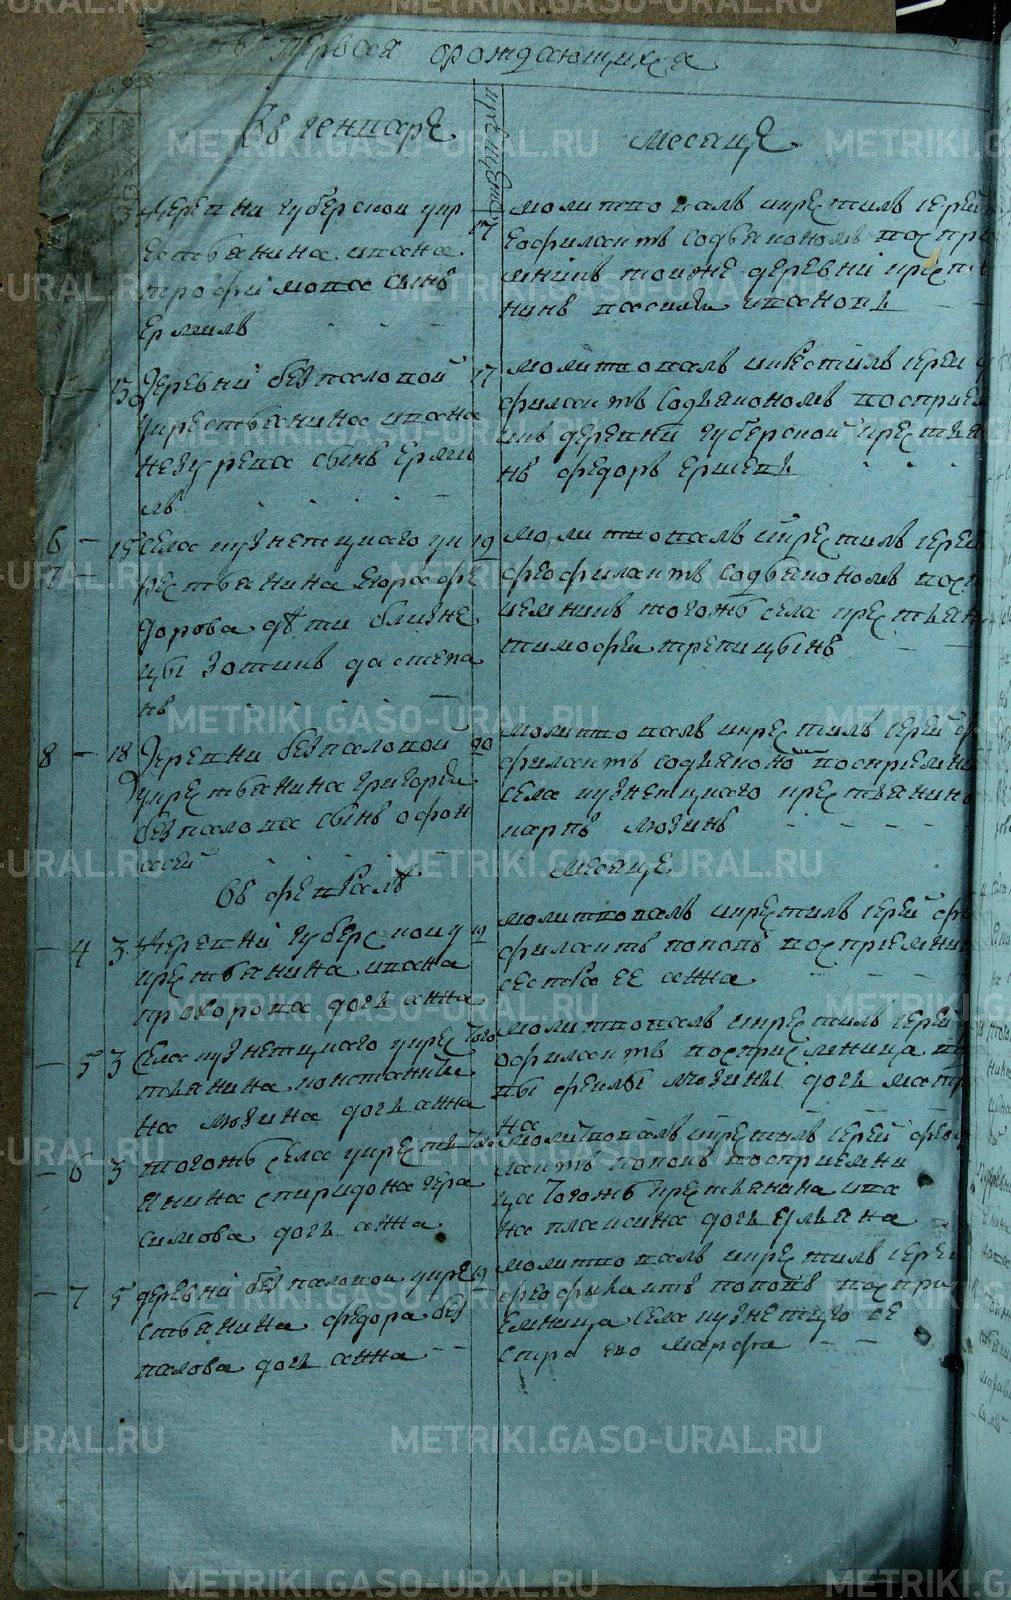 часть первая о рождающихся
въ генваре
крещения
месяце
13 деревни губерской у кр
естьянина ивана
трофимова сынъ
ермилъ
17
молитвовалъ и крестилъ иерей
феофилактъ со дьякономъ воспри
емникъ тоя же деревни крестья
нинъ василей ивановъ
13 деревни безпаловой
у крестьянина ивана
сынъ ерми
лъ
17
молитвовалъ и крестилъ иерей
филактъ со дьякономъ восприем
никъ деревни губерской крестьяни
нъ федоръ
6 - 15 села кузнецкаго у к
7 -
рестьянина егора фе
дорова дети близне
цы зотикъ да степа
нъ
19
молитвовалъ и крестилъ иерей
феофилактъ со дьякономъ восп
иемникъ тогожъ села крестьянин
тимофей трепицынъ
8 - 18 деревни безпаловой
у крестьянина григорья
безпалова сынъ афон
асей
20
молитвовалъ и крестилъ иерей фео
филактъ со дьякономъ восприемни
села кузнецкаго крестьянинъ
карпъ мюзинъ
въ феврале
месяце
- 4 3 деревни губерской у
крестьянина ивана
дочь анна
12
молитвовалъ и крестилъ иерей фео
филактъ попов восприемни
сестра ее анна
- 5 3 села кузнецкаго у крес
тьянина константи
на мюзина дочь анна
того
молитвовалъ и крестилъ иерей
офилактъ восприемница
мюзины дочь матр
на
- 6 5 тогожъ села у крестья
янина спиридона гера
симова дочь анна
того
молитвовалъ и крестилъ иерей феофи
лактъ попов восприемни
ца тогожъ крестьянина ива
на плаксина дочь ульяна
- 7 5 деревни безпаловой у кре
стьянина федора без
палова дочь анна
19
молитвовалъ и крестилъ иерей
феофилактъ попов воспри
емница села кузнецкаго се
стра ево марфа